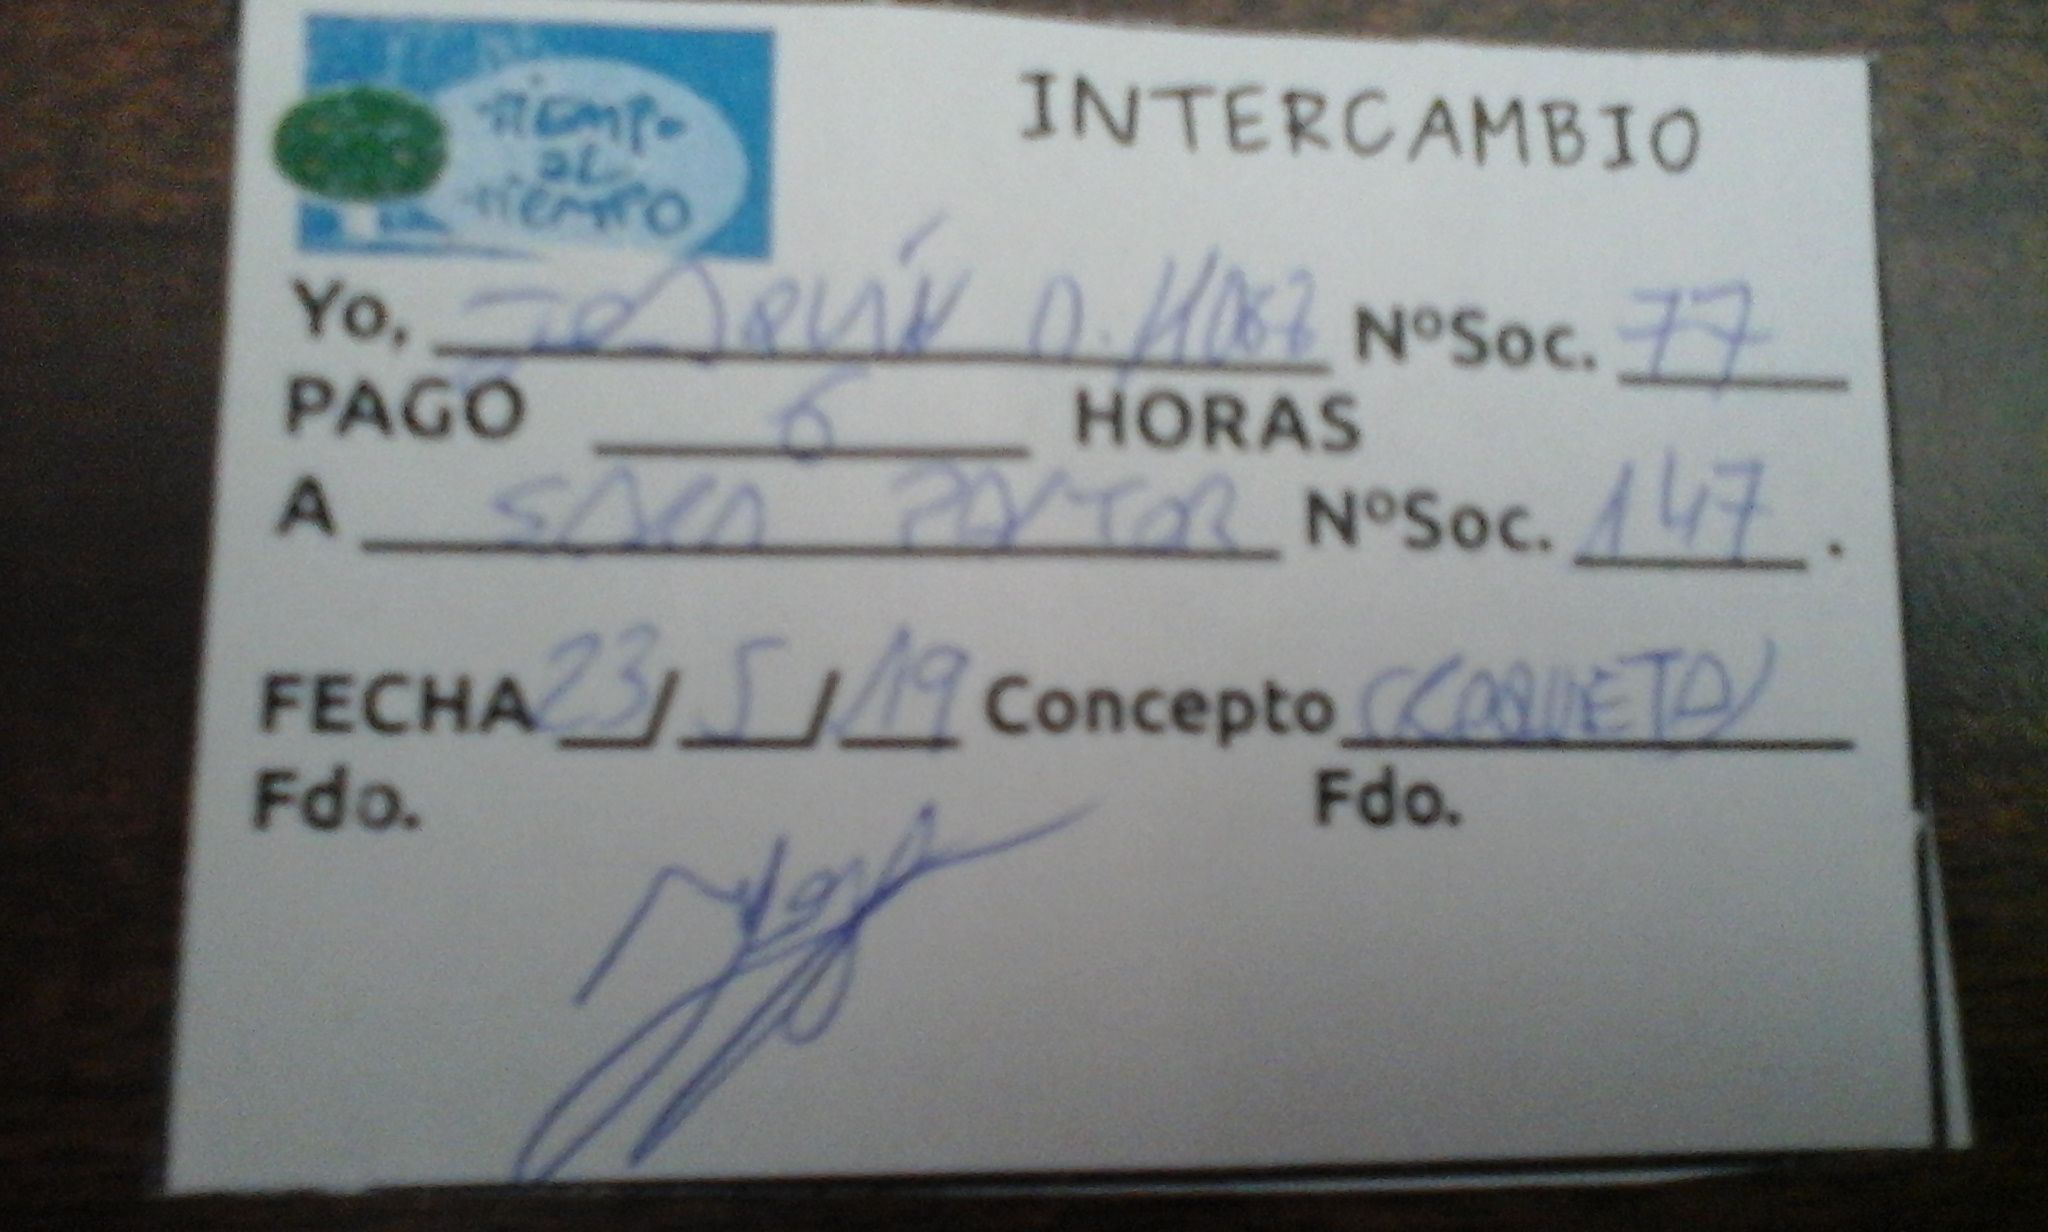 TIEMPO
AL
TIEMPO
INTERCAMBIO
Yo, JOAQUÍN D. NºSoc. 77
PAGO 6 HORAS
A SARA PASTOR NºSoc. 147.
FECHA 23/5/19 Concepto (CAQUETA)
Fdo. Fdo.